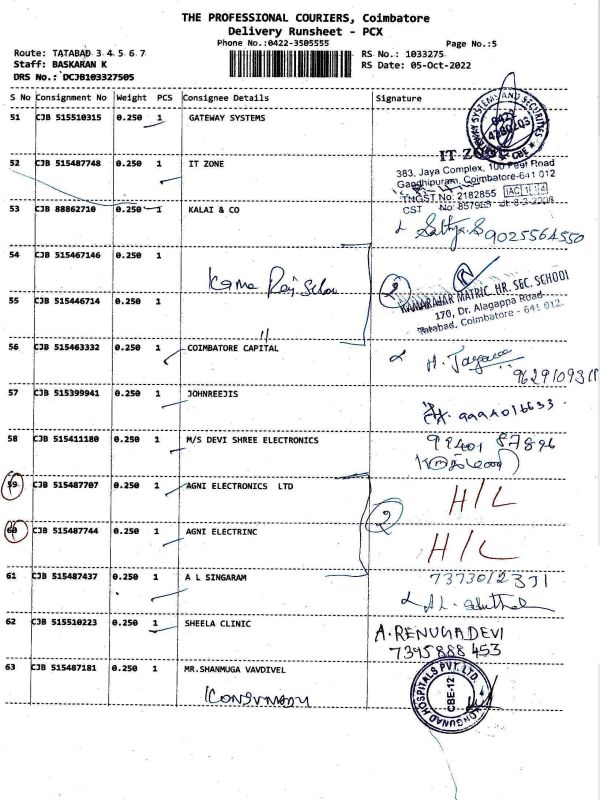 THE PROFESSIONAL COURIERS, Coimbatore
Delivery Runsheet - PCX
Phone No.:0422-3505555
Page No.:5
Route: TATABAD 3 4 5 6 7
RS No.: 1033275
Staff: BASKARAN K
RS Date: 05-Oct-2022
DRS No.: DCJB103327505
S No Consignment No Weight PCS Consignee Details Signature
51 CJB 515510315 0.250 1 GATEWAY SYSTEMS
52 CJB 515487748 0.250 1 IT ZONE
383, Jaya Complex, 100 Feet Road
Gandhipuram, Coimbatore-641 012
TNGST No: 2182855
CST No: 857963 dt: 8-3-2008
53 CJB 88862710 0.250 1 KALAI & CO
9025564550
54 CJB 515467146 0.250 1
2
HR. SEC. SCHOOL
170, Dr. Alagappa Road
Tatabad, Coimbatore - 641 012.
55 CJB 515446714 0.250 1
56 CJB 515463332 0.250 1 COIMBATORE CAPITAL
57 CJB 515399941 0.250 1 JOHNREEJIS
58 CJB 515411180 0.250 1 M/S DEVI SHREE ELECTRONICS
59 CJB 515487707 0.250 1 AGNI ELECTRONICS LTD
H/L
2
60 CJB 515487744 0.250 1 AGNI ELECTRINC
H/L
61 CJB 515487437 0.250 1 A L SINGARAM
62 CJB 515510223 0.250 1 SHEELA CLINIC
A. RENUGADEVI
7395888 453
63 CJB 515487181 0.250 1 MR.SHANMUGA VAVDIVEL
KONGUNAD HOSPITALS PVT. LTD
CBE-12